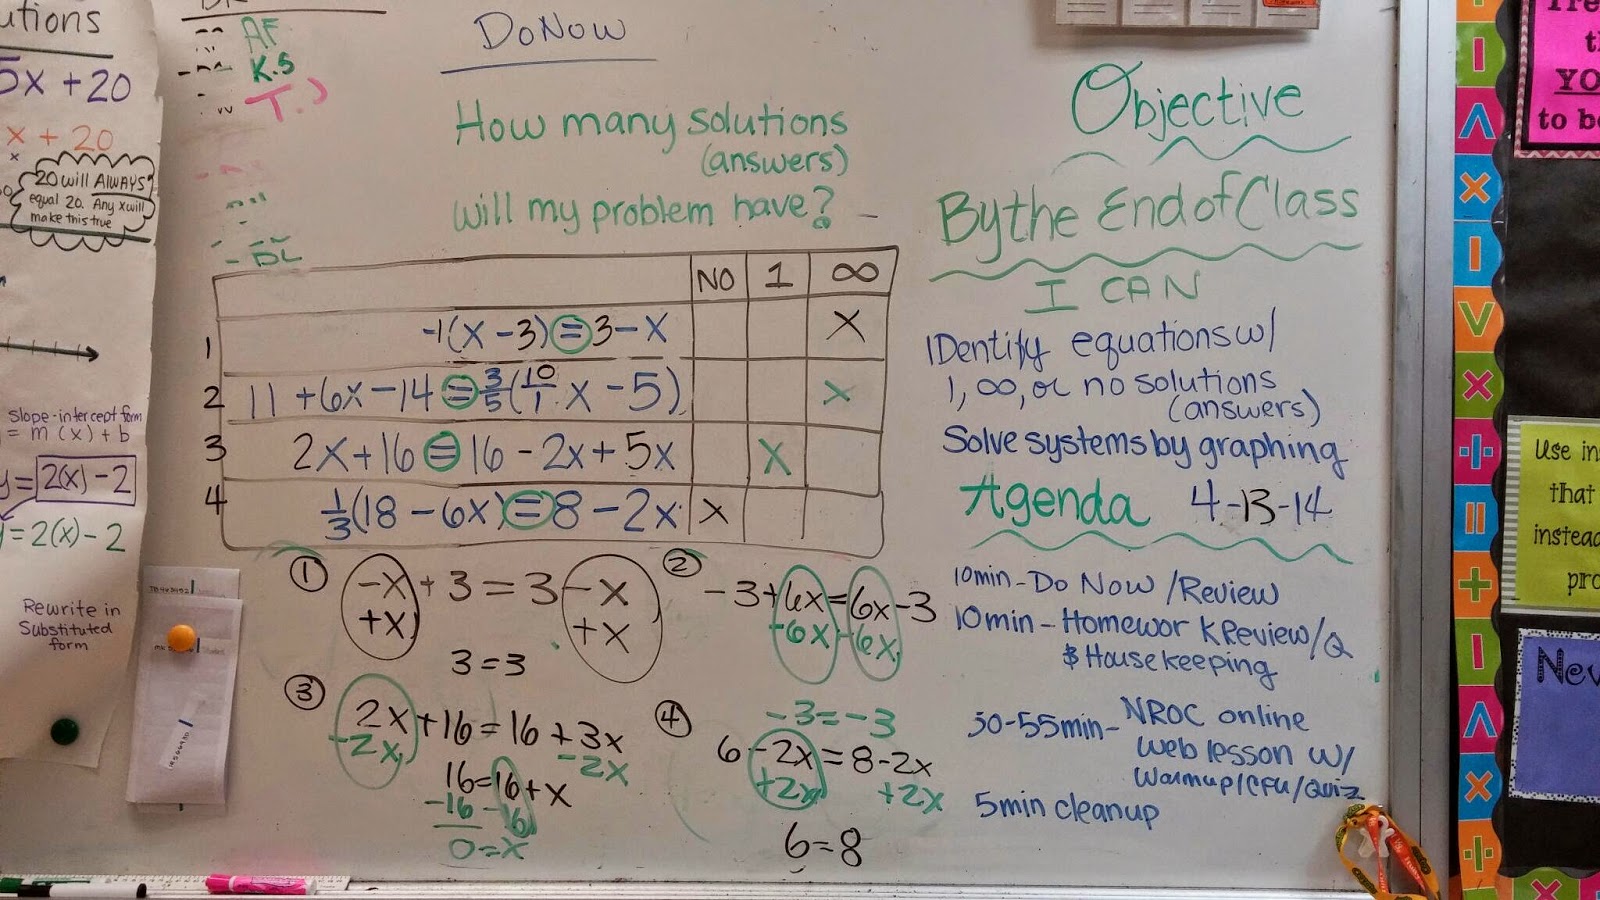 utions
5x + 20
x + 20
x
20 will ALWAYS
equal 20. Any x will
make this true
slope-intercept form
= m (x) + b
y = 2(x) - 2
= 2(x) - 2
Rewrite in
Substituted
form
AF
K.S
T.J
DL
DoNow
How many solutions
(answers)
will my problem have?
NO 1 ∞
1 -1(x - 3) = 3 - x X
2 11 + 6x - 14 = 3/5(10/1 x - 5) X
3 2x + 16 = 16 - 2x + 5x X
4 1/3(18 - 6x) = 8 - 2x X
① -x + 3 = 3 - x
+x +x
3 = 3
② -3 + 6x = 6x - 3
-6x -6x
-3 = -3
③ 2x + 16 = 16 + 3x
-2x -2x
16 = 16 + x
-16 -16
0 = x
④ 6 - 2x = 8 - 2x
+2x +2x
6 = 8
Objective
By the End of Class
I CAN
IDentify equations w/
1, ∞, or no solutions
(answers)
Solve systems by graphing
Agenda 4-13-14
10min - Do Now / Review
10min - Homework Review/Q
& Housekeeping
50-55min - NROC online
web lesson w/
Warmup/CFU/Quiz
5min cleanup
YO
to be
Use in
that
instead
pro
New